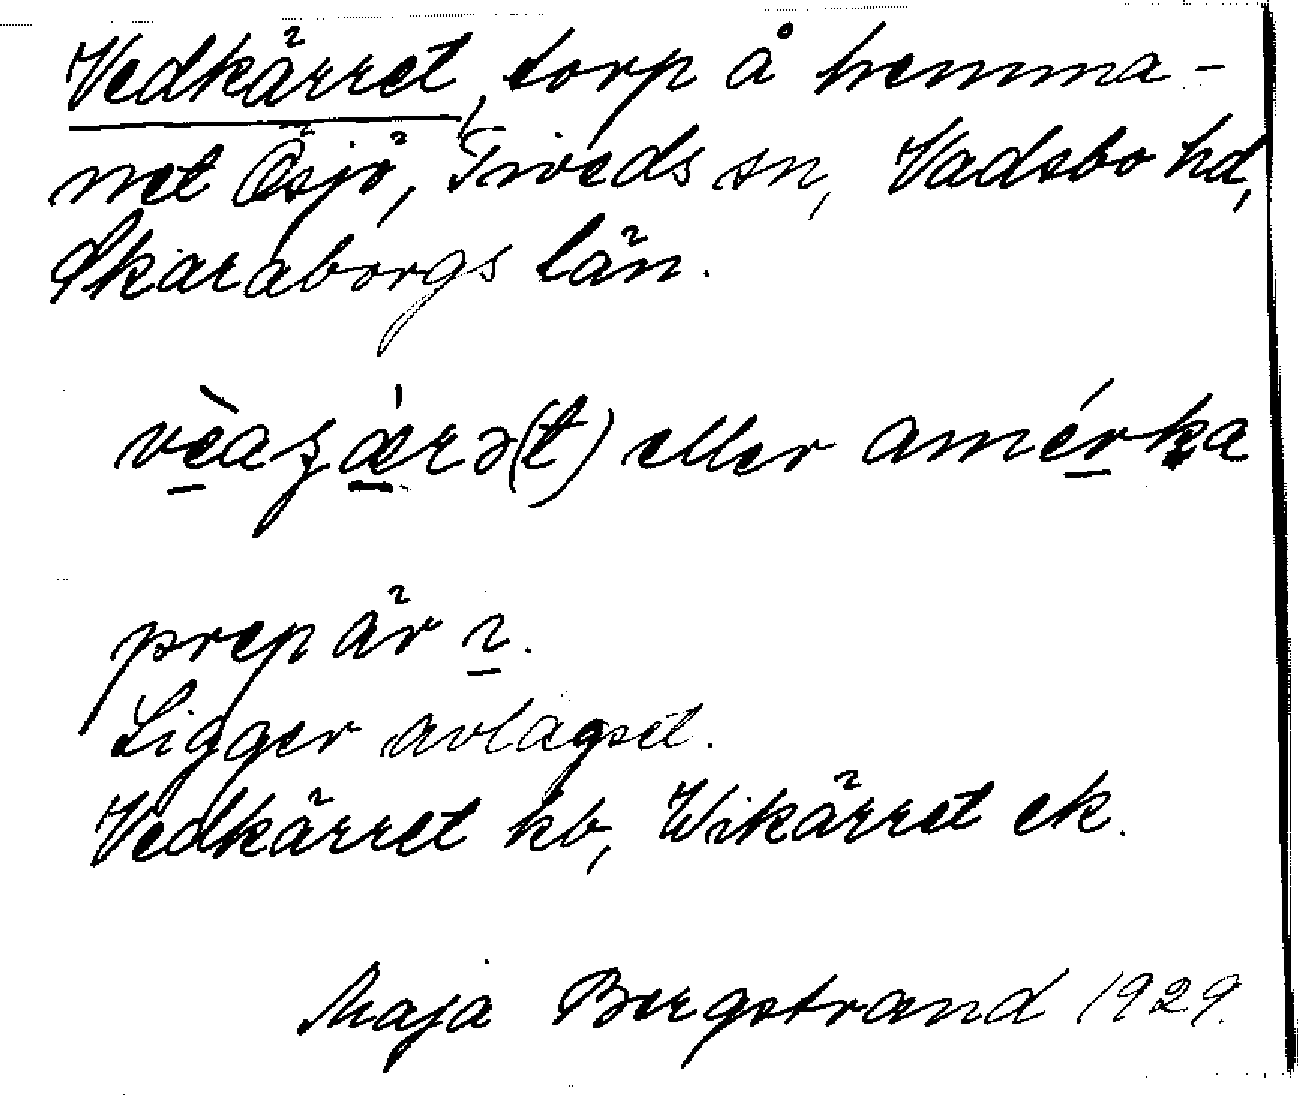 Vedkärret, torp å hemma-
net Ösjö, Tiveds sn, Vadsbo hd,
Skaraborgs län.
eller amérka
prep är ı.
Ligger avlägset.
Vedkärret kb, Wikärret ek.
Maja Bergstrand 1929.